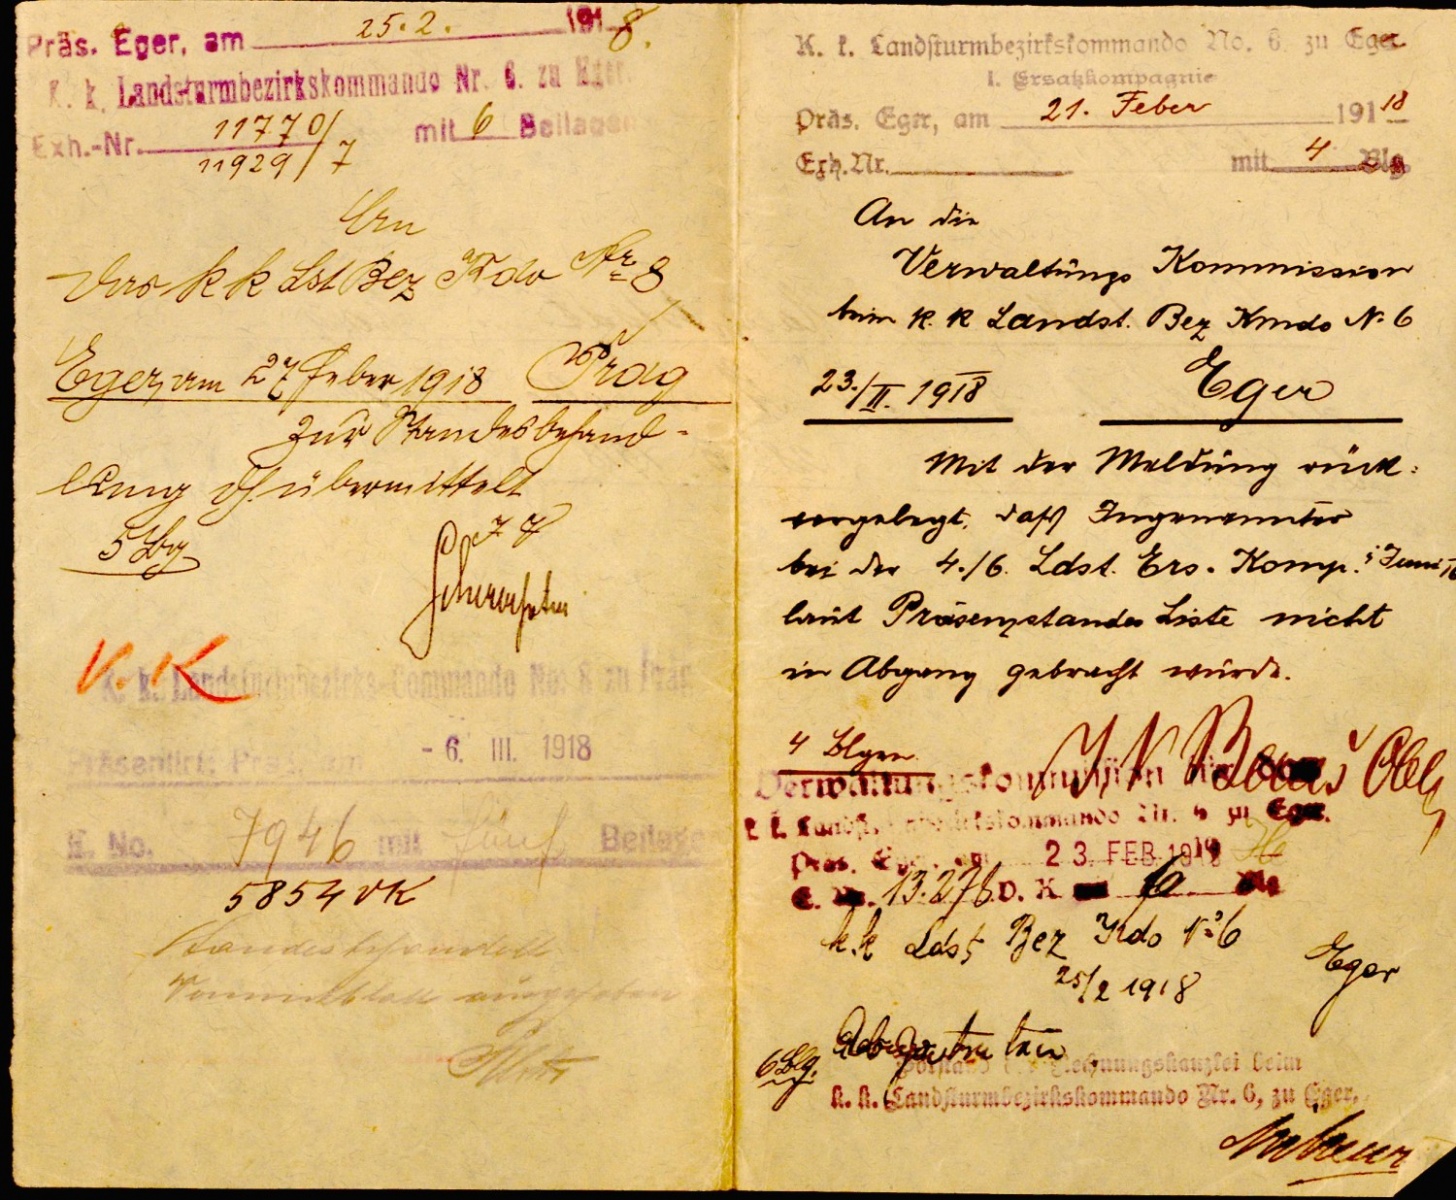 Präs. Eger, am 25.2. 1918.
K. k. Landsturmbezirkskommando Nr. 6. zu Eger.
Exh.-Nr. 11770/7 mit 6 Beilagen
11929/7
An
das k k Lst Bez Kdo Nr 8
Eger, am 27 Feber 1918 Prag
zur Standesbehand-
lung übermittelt
5 Blg
V.K
K. k. Landsturmbezirks-Commando No: 8 zu Prag
Präsentirt: Prag, am - 6. III. 1918
E. No. 7946 mit fünf Beilagen
5854 VK
Standesbehandelt
K. k. Landsturmbezirkskommando No. 6. zu Eger
I. Ersatzkompagnie
Präs. Eger, am 21. Feber 1918
Exh. Nr. mit 4 Blg
An die
Verwaltungs Kommission
beim k. k Landst. Bez Kmdo N. 6
23./II. 1918 Eger
Mit der Meldung rück-
vorgelegt, daß Ingenannter
bei der 4./6. Ldst. Ers. Komp. i Juni
laut Präsenzstandes Liste nicht
in Abgang gebracht wurde.
4 Blgen
Verwaltungskommission
k. k. Landst. Nr. 6 zu Eger.
Präs. Eger, am 23. FEB. 1918
E. Nr. 13.276 V. K 6 Blg
k.k Ldst Bez Kdo No 6
Eger
25/2 1918
6 Blg.
Vorstand der Rechnungskanzlei beim
k. k. Landsturmbezirkskommando Nr. 6, zu Eger.